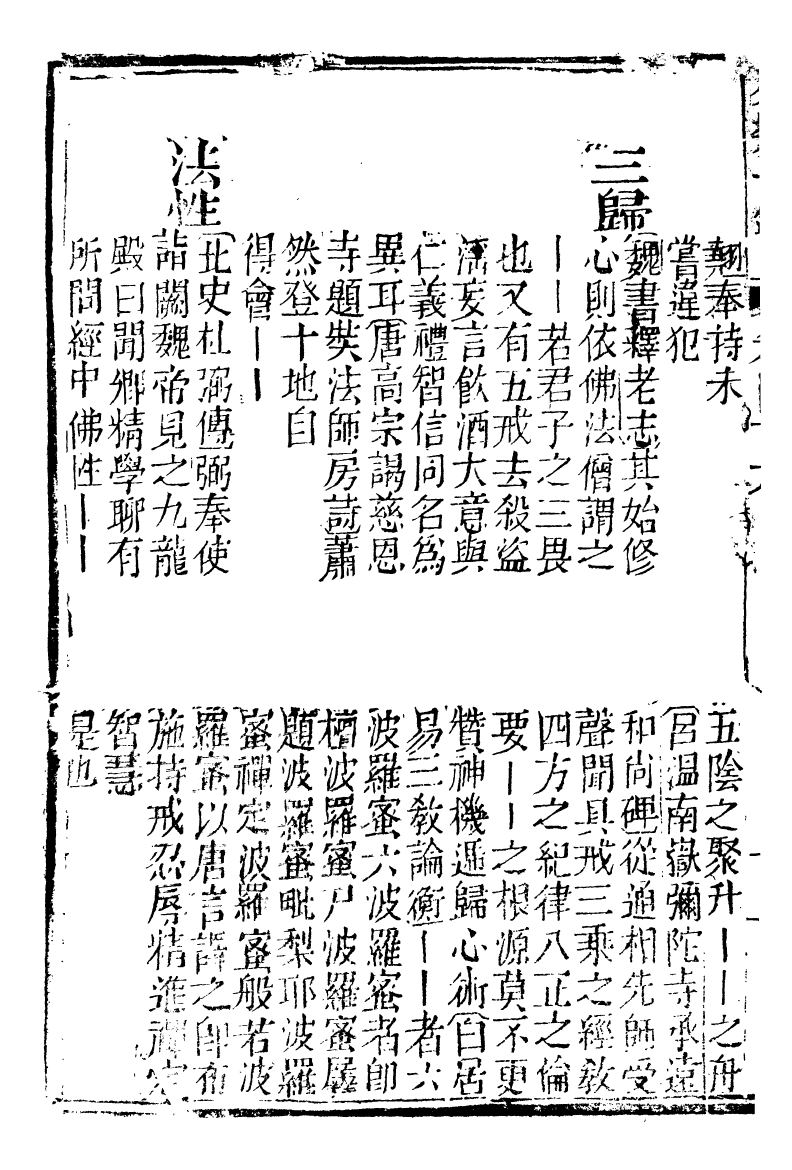 翹奉持未
嘗違犯
三歸
魏書釋老志其始修
心則依佛法僧謂之
丨丨若君子之三畏
也又有五戒去殺盜
滛妄言飲酒大意與
仁義禮智信同名為
異耳唐高宗謁慈恩
寺題奘法師房詩蕭
然登十地自
得會丨丨
法性
北史杜弼傳弼奉使
詣闕魏帝見之九龍
殿曰聞卿精學聊有
所問經中佛性丨丨
五陰之聚升丨丨之舟
呂温南嶽彌陀寺承遠
和尚碑從通相先師受
聲聞具戒三乘之經教
四方之紀律八正之倫
要丨丨之根源莫不更
贊神機遞歸心術白居
易三教論衡丨丨者六
波羅蜜六波羅蜜者即
檀波羅蜜尸波羅蜜羼
題波羅蜜毗梨耶波羅
蜜禪定波羅蜜般若波
羅蜜以唐言譯之即布
施持戒忍辱精進禪定
智慧
是也